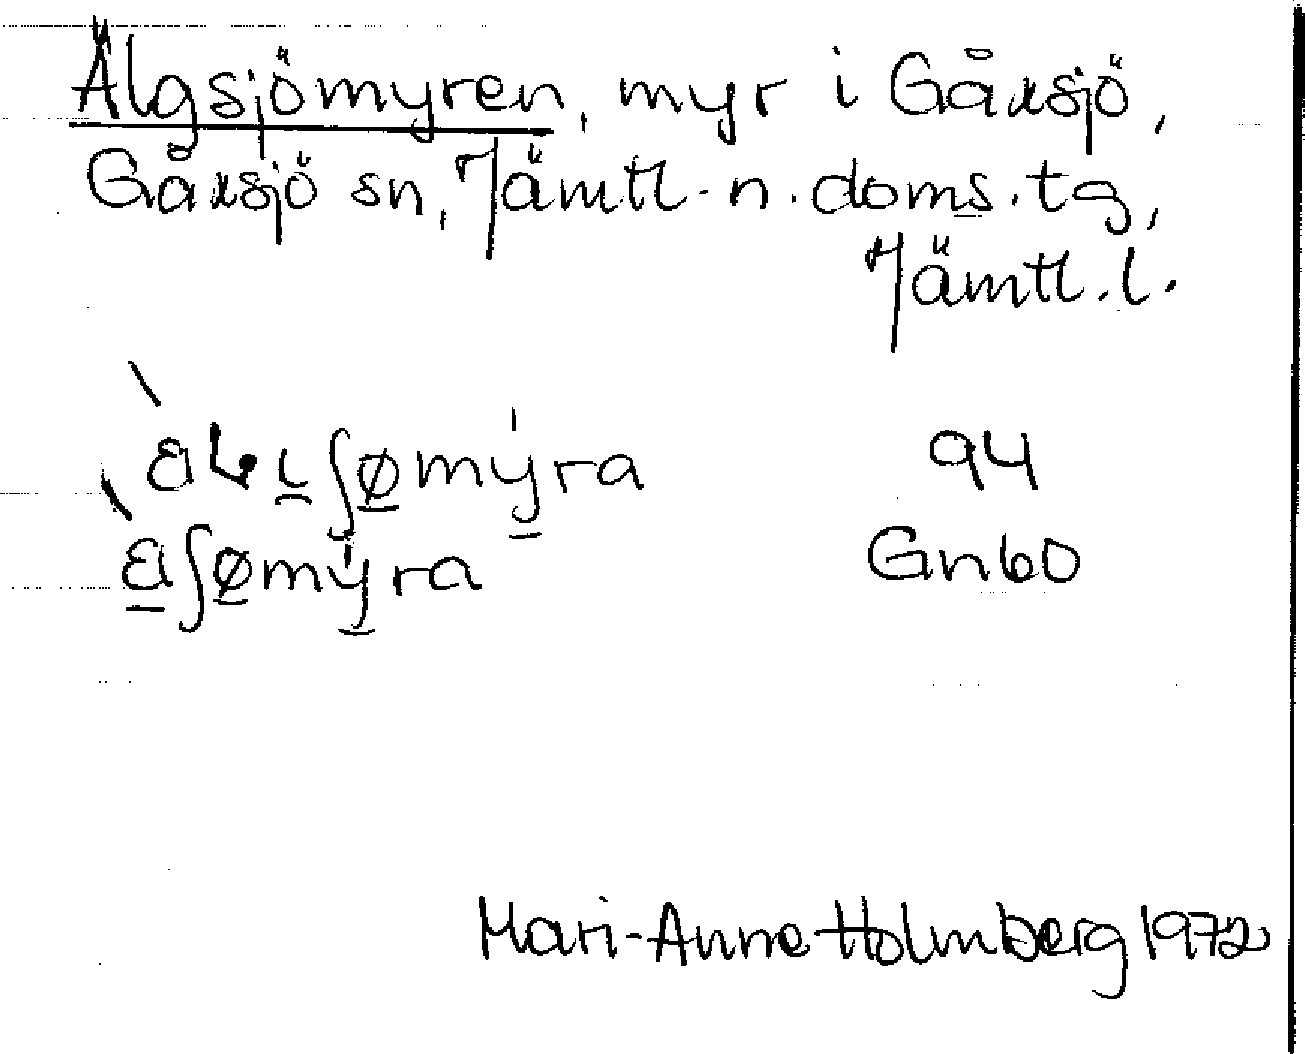 Älgsjömyren, myr i Gåxsjö,
Gåxsjö sn, Jämtl. n. doms. tg,
Jämtl. l.
94
ʃø̱my̱ra Gn60
Mari-Anne Holmberg 1972